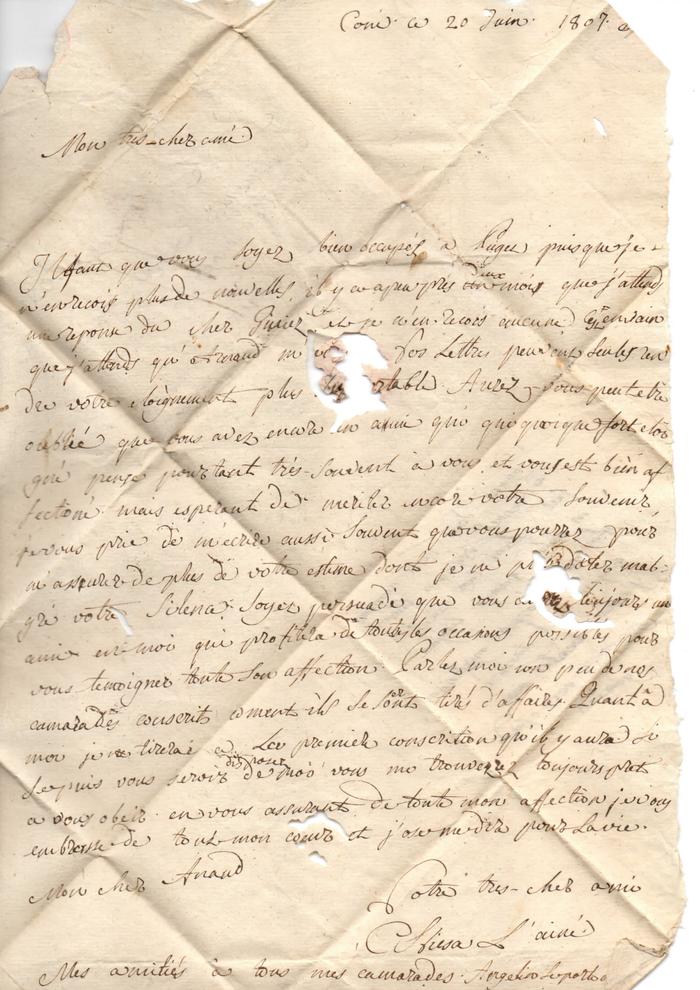 Coni ce 20 Juin 1807
Mon tres-cher ami
Il faut que vous soyez bien occupés à puisque je
n'en recois plus de nouvelles, il y a apeu près deux mois que j'attends
une reponse du cher et je n'en recois aucune en vain
que j'attends qu'Arnaud m Vos Lettres peuvent seules ren
dre votre eloignement plus Aurez-vous peut etre
oublié que vous avez encore un ami qui quoique fort eloi
gné pense pourtant très-souvent à vous et vous est bien af
fectioné mais esperant de meriter encore votre Souvenir
je vous prie de m'ecrire aussi souvent que vous pourrez pour
m'assurer de plus de votre estime dont je mal-
gré votre Silence Soyez persuadé que vous toujours un
ami en moi qui profitera de toutes les occasions possibles pour
vous temoigner toute son affection. Parlez moi un peu de nos
camarades conscrit coment ils se sont tirés d'affaire Quant à
moi je tirerai Le premier conscrition qu'il y aura Si
je puis vous servir disposez de moi vous me trouverez toujours prêt
a vous obeir en vous assurant de toute mon affection je vous
embrasse de tout mon cœur et j'ose me dir pour la vie.
Mon cher Arnaud
Votre tres-cher ami
Chiesa L'ainé
Mes amitiés à tous mes camarades Angelino